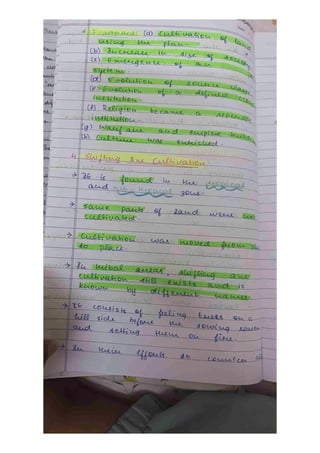 (a) Cultivation of land
using the plow.
(b) Increase in size of
(c) Emergence of an
system.
(d) Evolution of science
(e) Evolution of a defined
institution.
(f) Religion became a separate
institution.
(g) Warfare and empire building
(h) Culture was enriched
4. Shifting Axe Cultivation
→ It is found in the
and zone.
→ Same parts of land were not
cultivated.
→ Cultivation was moved from
to place.
→ In tribal areas, shifting axe
cultivation still exists and is
known by different names.
→ It consists of feeling trees on a
hill side before the sowing season
and setting them on fire.
→ In their efforts to counter